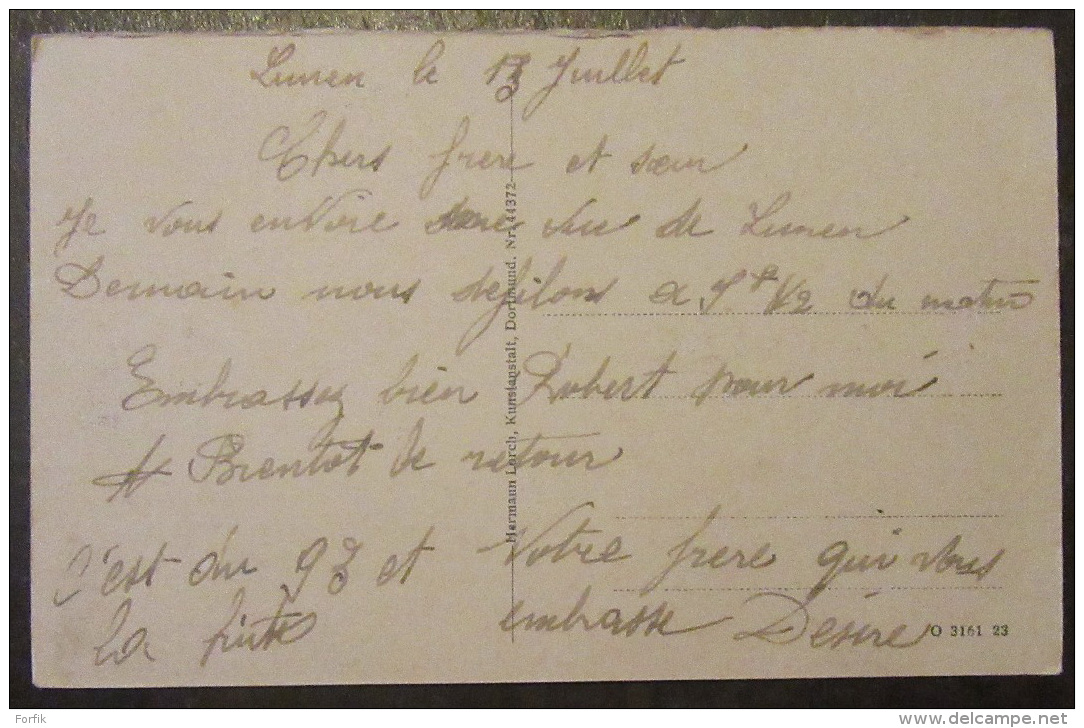 Lunen le 13 Juillet
Chers frere et sœur
Je vous envoire une vue de Lunen
Demain nous defilons a 1/2 du matin
Embrassez bien Robert pour moi
A Bientot le retour
c'est du 93 et
la fuite
Votre frere qui vous
embrasse Désiré
Hermann Lorch, Kunstanstalt, Dortmund. Nr. 44372
O 3161 23
Forfik
delcampe.net